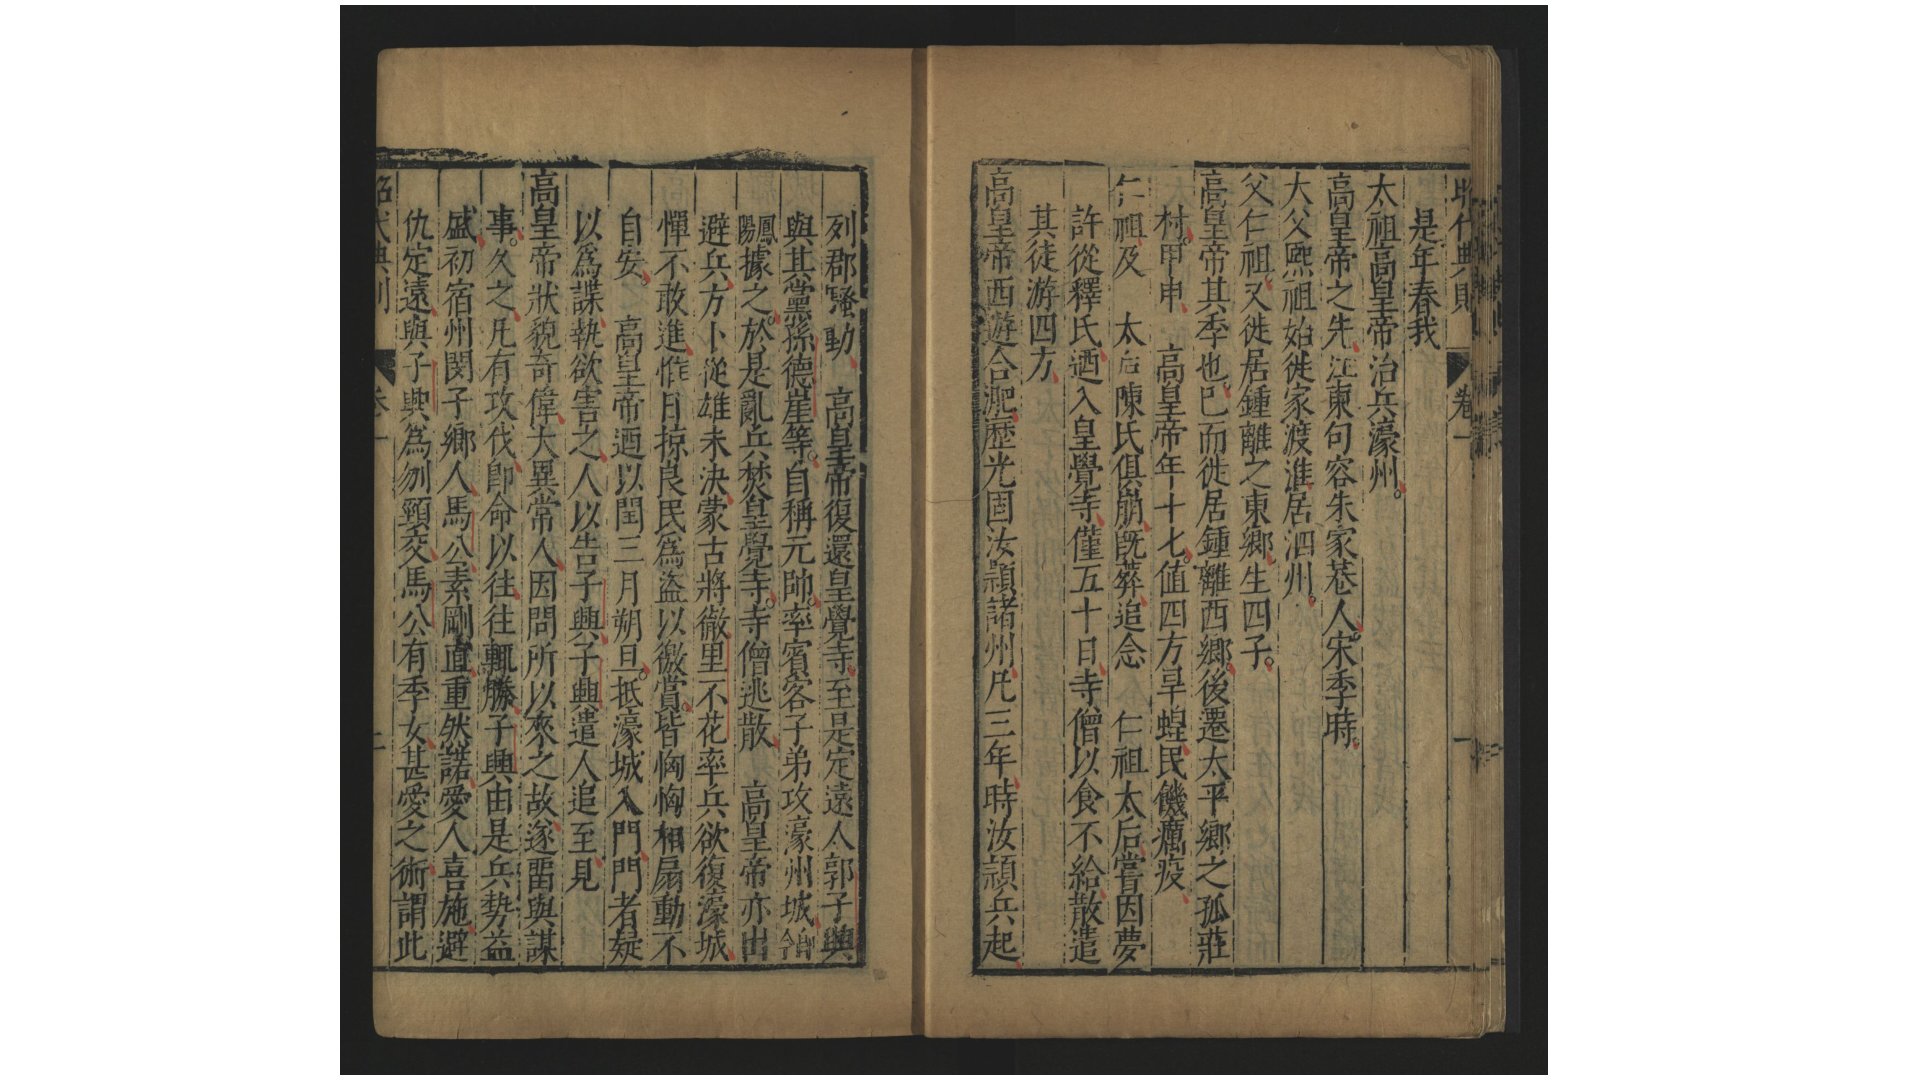 昭代典則 卷一 一
是年春我
太祖高皇帝治兵濠州。
高皇帝之先江東句容朱家巷人。宋季時。
大父熙祖始徙家渡淮居泗州。
父仁祖又徙居鍾離之東鄉生四子。
高皇帝其季也。已而徙居鍾離西鄉後遷太平鄉之孤莊
村。甲申 高皇帝年十七。值四方旱蝗民饑癘疫
仁祖及 太后陳氏俱崩旣葬追念 仁祖太后嘗因夢
許從釋氏迺入皇覺寺僅五十日寺僧以食不給散遣
其徒游四方
高皇帝西遊合淝歷光固汝潁諸州凡三年時汝潁兵起
列郡騷動 高皇帝復還皇覺寺至是定遠人郭子興
與其黨孫德崖等。自稱元帥。率賓客子弟攻濠州城
鳳陽據之。於是亂兵焚皇覺寺。寺僧逃散 高皇帝亦出
避兵方卜從雄未決蒙古將徹里不花率兵欲復濠城
憚不敢進惟日掠良民爲盜以徼賞。皆恟恟相扇動不
自安。 高皇帝迺以閏三月朔日。抵濠城入門門者疑
以爲諜執欲害之人以告子興子興遣人追至見
高皇帝狀貌奇偉大異常人因問所以來之故遂畱與謀
事。久之凡有攻伐卽命以往往輒勝子興由是兵勢益
盛初宿州閔子鄉人馬公素剛直重然諾愛人喜施避
仇定遠與子興爲刎頸交馬公有季女甚愛之術謂此
昭代典則 卷一 二